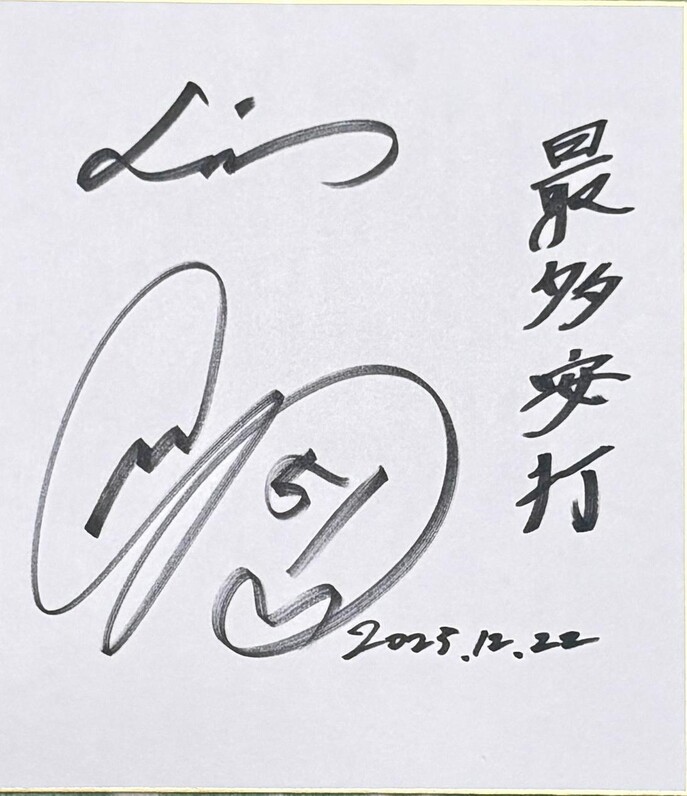 最多安打
Lin
51
2025.12.22